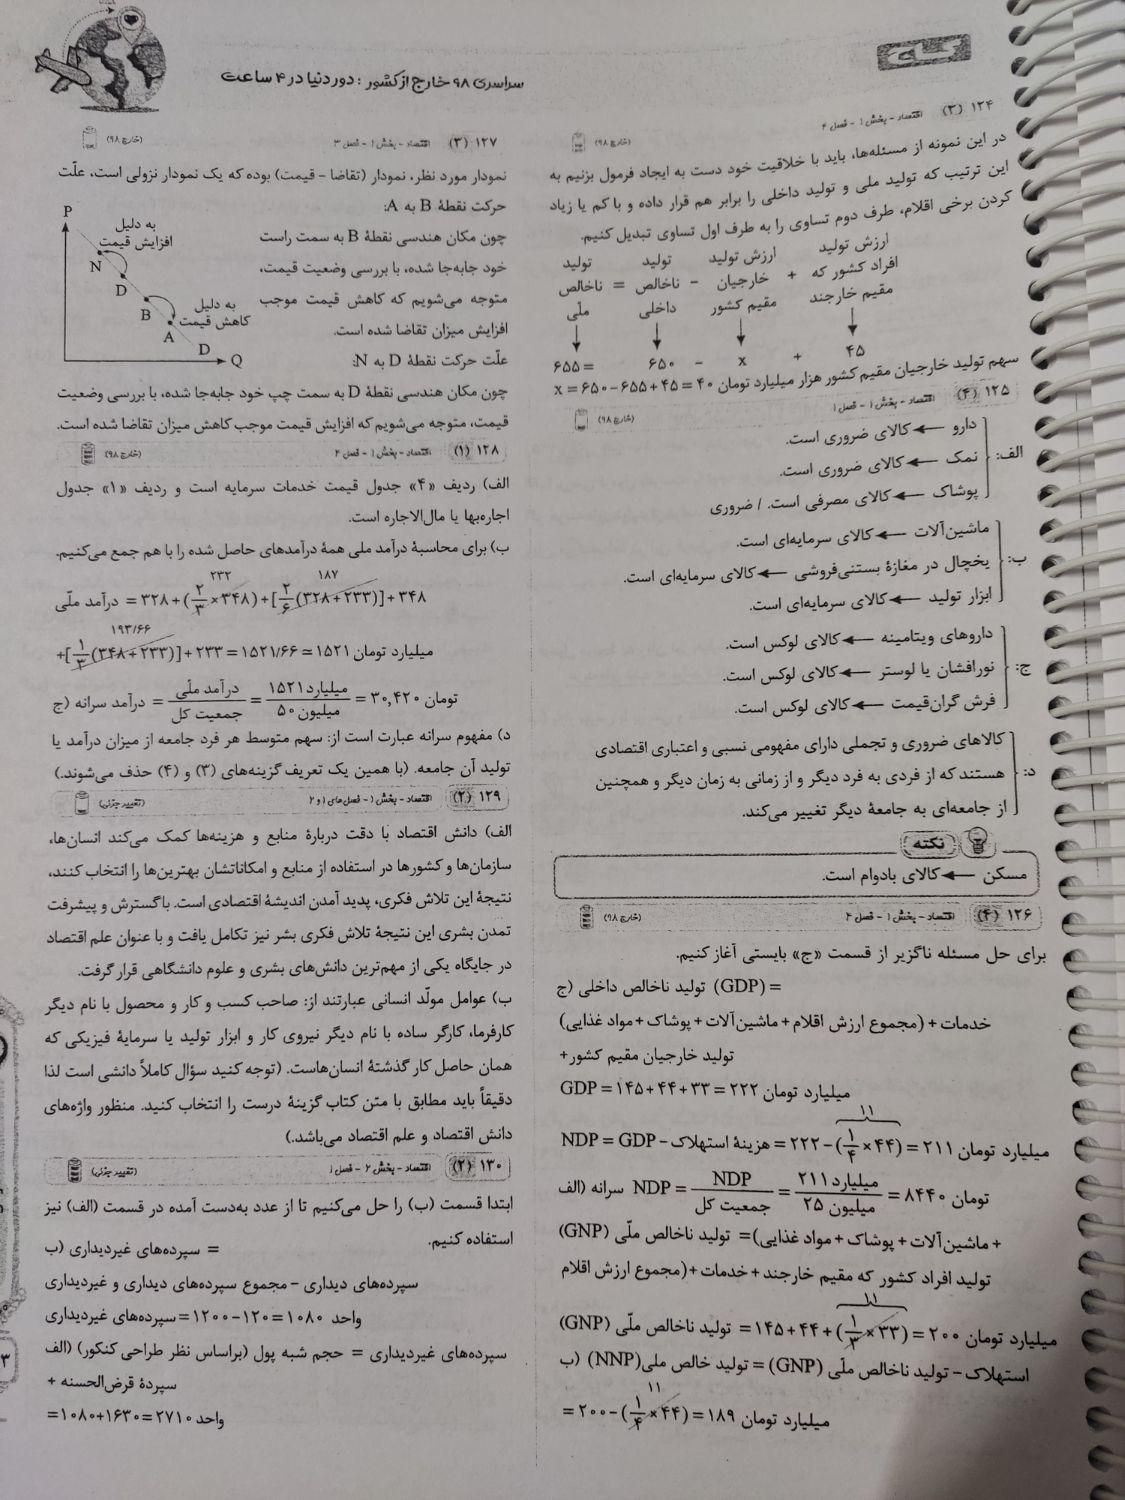 سراسری ۹۸ خارج از کشور : دور دنیا در ۴ ساعت
۱۲۴ (۳) اقتصاد - بخش ۱ - فصل ۴ (خارج ۹۸)
در این نمونه از مسئله‌ها، باید با خلاقیت خود دست به ایجاد فرمول بزنیم به
این ترتیب که تولید ملی و تولید داخلی را برابر هم قرار داده و با کم یا زیاد
کردن برخی اقلام، طرف دوم تساوی را به طرف اول تساوی تبدیل کنیم.
تولید ناخالص ملّی = تولید ناخالص داخلی - ارزش تولید خارجیان مقیم کشور + ارزش تولید افراد کشور که مقیم خارجند
۶۵۵ = ۶۵۰ - x + ۴۵
سهم تولید خارجیان مقیم کشور هزار میلیارد تومان x = ۶۵۰ - ۶۵۵ + ۴۵ = ۴۰
۱۲۵ (۴) اقتصاد - بخش ۱ - فصل ۱ (خارج ۹۸)
الف:
دارو ← کالای ضروری است.
نمک ← کالای ضروری است.
پوشاک ← کالای مصرفی است. / ضروری
ب:
ماشین‌آلات ← کالای سرمایه‌ای است.
یخچال در مغازهٔ بستنی‌فروشی ← کالای سرمایه‌ای است.
ابزار تولید ← کالای سرمایه‌ای است.
ج:
داروهای ویتامینه ← کالای لوکس است.
نورافشان یا لوستر ← کالای لوکس است.
فرش گران‌قیمت ← کالای لوکس است.
د:
کالاهای ضروری و تجملی دارای مفهومی نسبی و اعتباری اقتصادی
هستند که از فردی به فرد دیگر و از زمانی به زمان دیگر و همچنین
از جامعه‌ای به جامعهٔ دیگر تغییر می‌کند.
نکته
مسکن ← کالای بادوام است.
۱۲۶ (۴) اقتصاد - بخش ۱ - فصل ۴ (خارج ۹۸)
برای حل مسئله ناگزیر از قسمت «ج» بایستی آغاز کنیم.
ج) تولید ناخالص داخلی (GDP) =
خدمات + (مجموع ارزش اقلام + ماشین‌آلات + پوشاک + مواد غذایی)
+ تولید خارجیان مقیم کشور
GDP = ۱۴۵ + ۴۴ + ۳۳ = ۲۲۲ میلیارد تومان
۱۱
NDP = GDP - هزینهٔ استهلاک = ۲۲۲ - (۱/۴ × ۴۴) = ۲۱۱ میلیارد تومان
الف) سرانه NDP = NDP / جمعیت کل = ۲۱۱ میلیارد / ۲۵ میلیون = ۸۴۴۰ تومان
(GNP) تولید ناخالص ملّی = (ماشین‌آلات + پوشاک + مواد غذایی +
تولید افراد کشور که مقیم خارجند + خدمات + (مجموع ارزش اقلام
۱۱
(GNP) تولید ناخالص ملّی = ۱۴۵ + ۴۴ + (۱/۳ × ۳۳) = ۲۰۰ میلیارد تومان
ب) (NNP) تولید خالص ملی = (GNP) تولید ناخالص ملّی - استهلاک
۱۱
= ۲۰۰ - (۱/۴ × ۴۴) = ۱۸۹ میلیارد تومان
۱۲۷ (۳) اقتصاد - بخش ۱ - فصل ۳ (خارج ۹۸)
نمودار مورد نظر، نمودار (تقاضا - قیمت) بوده که یک نمودار نزولی است، علّت
حرکت نقطهٔ B به A:
چون مکان هندسی نقطهٔ B به سمت راست
خود جابه‌جا شده، با بررسی وضعیت قیمت،
متوجه می‌شویم که کاهش قیمت موجب
افزایش میزان تقاضا شده است.
علّت حرکت نقطهٔ D به N:
چون مکان هندسی نقطهٔ D به سمت چپ خود جابه‌جا شده، با بررسی وضعیت
قیمت، متوجه می‌شویم که افزایش قیمت موجب کاهش میزان تقاضا شده است.
P
به دلیل
افزایش قیمت
N
D
B
به دلیل
کاهش قیمت
A
D
Q
۱۲۸ (۱) اقتصاد - بخش ۱ - فصل ۴ (خارج ۹۸)
الف) ردیف «۴» جدول قیمت خدمات سرمایه است و ردیف «۱» جدول
اجاره‌بها یا مال‌الاجاره است.
ب) برای محاسبهٔ درآمد ملی همهٔ درآمدهای حاصل شده را با هم جمع می‌کنیم.
۲۳۲ ۱۸۷
درآمد ملّی = ۳۲۸ + (۲/۳ × ۳۴۸) + [۲/۶ (۳۲۸ + ۲۳۳)] + ۳۴۸
۱۹۳/۶۶
+ [۱/۳ (۳۴۸ + ۲۳۳)] + ۲۳۳ = ۱۵۲۱/۶۶ ≃ ۱۵۲۱ میلیارد تومان
ج) درآمد سرانه = درآمد ملّی / جمعیت کل = ۱۵۲۱ میلیارد / ۵۰ میلیون = ۳۰,۴۲۰ تومان
د) مفهوم سرانه عبارت است از: سهم متوسط هر فرد جامعه از میزان درآمد یا
تولید آن جامعه. (با همین یک تعریف گزینه‌های (۳) و (۴) حذف می‌شوند.)
۱۲۹ (۲) اقتصاد - بخش ۱ - فصل‌های ۱ و ۲ (تغییر جزئی)
الف) دانش اقتصاد با دقت دربارهٔ منابع و هزینه‌ها کمک می‌کند انسان‌ها،
سازمان‌ها و کشورها در استفاده از منابع و امکاناتشان بهترین‌ها را انتخاب کنند،
نتیجهٔ این تلاش فکری، پدید آمدن اندیشهٔ اقتصادی است. با گسترش و پیشرفت
تمدن بشری این نتیجهٔ تلاش فکری بشر نیز تکامل یافت و با عنوان علم اقتصاد
در جایگاه یکی از مهم‌ترین دانش‌های بشری و علوم دانشگاهی قرار گرفت.
ب) عوامل مولّد انسانی عبارتند از: صاحب کسب و کار و محصول با نام دیگر
کارفرما، کارگر ساده با نام دیگر نیروی کار و ابزار تولید یا سرمایهٔ فیزیکی که
همان حاصل کار گذشتهٔ انسان‌هاست. (توجه کنید سؤال کاملاً دانشی است لذا
دقیقاً باید مطابق با متن کتاب گزینهٔ درست را انتخاب کنید. منظور واژه‌های
دانش اقتصاد و علم اقتصاد می‌باشد.)
۱۳۰ (۲) اقتصاد - بخش ۲ - فصل ۱ (تغییر جزئی)
ابتدا قسمت (ب) را حل می‌کنیم تا از عدد به‌دست آمده در قسمت (الف) نیز
استفاده کنیم.
ب) سپرده‌های غیردیداری =
سپرده‌های دیداری - مجموع سپرده‌های دیداری و غیردیداری
سپرده‌های غیردیداری = ۱۲۰۰ - ۱۲۰ = ۱۰۸۰ واحد
الف) (براساس نظر طراحی کنکور) حجم شبه پول = سپرده‌های غیردیداری
+ سپردهٔ قرض‌الحسنه
= ۱۰۸۰ + ۱۶۳۰ = ۲۷۱۰ واحد
۳